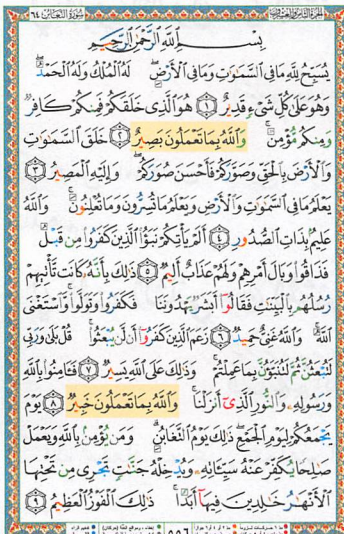 سورة التغابن ٦٤
بِسْمِ اللَّهِ الرَّحْمَٰنِ الرَّحِيمِ
يُسَبِّحُ لِلَّهِ مَا فِي السَّمَٰوَٰتِ وَمَا فِي الْأَرْضِ ۖ لَهُ الْمُلْكُ وَلَهُ الْحَمْدُ ۖ
وَهُوَ عَلَىٰ كُلِّ شَيْءٍ قَدِيرٌ ١ هُوَ الَّذِي خَلَقَكُمْ فَمِنكُمْ كَافِرٌ
وَمِنكُم مُّؤْمِنٌ ۚ وَاللَّهُ بِمَا تَعْمَلُونَ بَصِيرٌ ٢ خَلَقَ السَّمَٰوَٰتِ
وَالْأَرْضَ بِالْحَقِّ وَصَوَّرَكُمْ فَأَحْسَنَ صُوَرَكُمْ ۖ وَإِلَيْهِ الْمَصِيرُ ٣
يَعْلَمُ مَا فِي السَّمَٰوَٰتِ وَالْأَرْضِ وَيَعْلَمُ مَا تُسِرُّونَ وَمَا تُعْلِنُونَ ۚ وَاللَّهُ
عَلِيمٌ بِذَاتِ الصُّدُورِ ٤ أَلَمْ يَأْتِكُمْ نَبَؤُا الَّذِينَ كَفَرُوا مِن قَبْلُ
فَذَاقُوا وَبَالَ أَمْرِهِمْ وَلَهُمْ عَذَابٌ أَلِيمٌ ٥ ذَٰلِكَ بِأَنَّهُ كَانَت تَّأْتِيهِمْ
رُسُلُهُم بِالْبَيِّنَٰتِ فَقَالُوا أَبَشَرٌ يَهْدُونَنَا فَكَفَرُوا وَتَوَلَّوا ۚ وَّاسْتَغْنَى
اللَّهُ ۚ وَاللَّهُ غَنِيٌّ حَمِيدٌ ٦ زَعَمَ الَّذِينَ كَفَرُوا أَن لَّن يُبْعَثُوا ۚ قُلْ بَلَىٰ وَرَبِّي
لَتُبْعَثُنَّ ثُمَّ لَتُنَبَّؤُنَّ بِمَا عَمِلْتُمْ ۚ وَذَٰلِكَ عَلَى اللَّهِ يَسِيرٌ ٧ فَـَٔامِنُوا بِاللَّهِ
وَرَسُولِهِ وَالنُّورِ الَّذِي أَنزَلْنَا ۚ وَاللَّهُ بِمَا تَعْمَلُونَ خَبِيرٌ ٨ يَوْمَ
يَجْمَعُكُمْ لِيَوْمِ الْجَمْعِ ۖ ذَٰلِكَ يَوْمُ التَّغَابُنِ ۗ وَمَن يُؤْمِن بِاللَّهِ وَيَعْمَلْ
صَٰلِحًا يُكَفِّرْ عَنْهُ سَيِّـَٔاتِهِ وَيُدْخِلْهُ جَنَّٰتٍ تَجْرِي مِن تَحْتِهَا
الْأَنْهَٰرُ خَٰلِدِينَ فِيهَا أَبَدًا ۚ ذَٰلِكَ الْفَوْزُ الْعَظِيمُ ٩